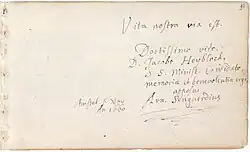 Vita nostra via est.
Doctissimo viro,
D. Jacobo Heyblocq,
S. S. Minist. Candidato,
memoriæ et benevolentiæ ergo
apposui
Arn. Senguerdius
Amstel. 5 Nov.